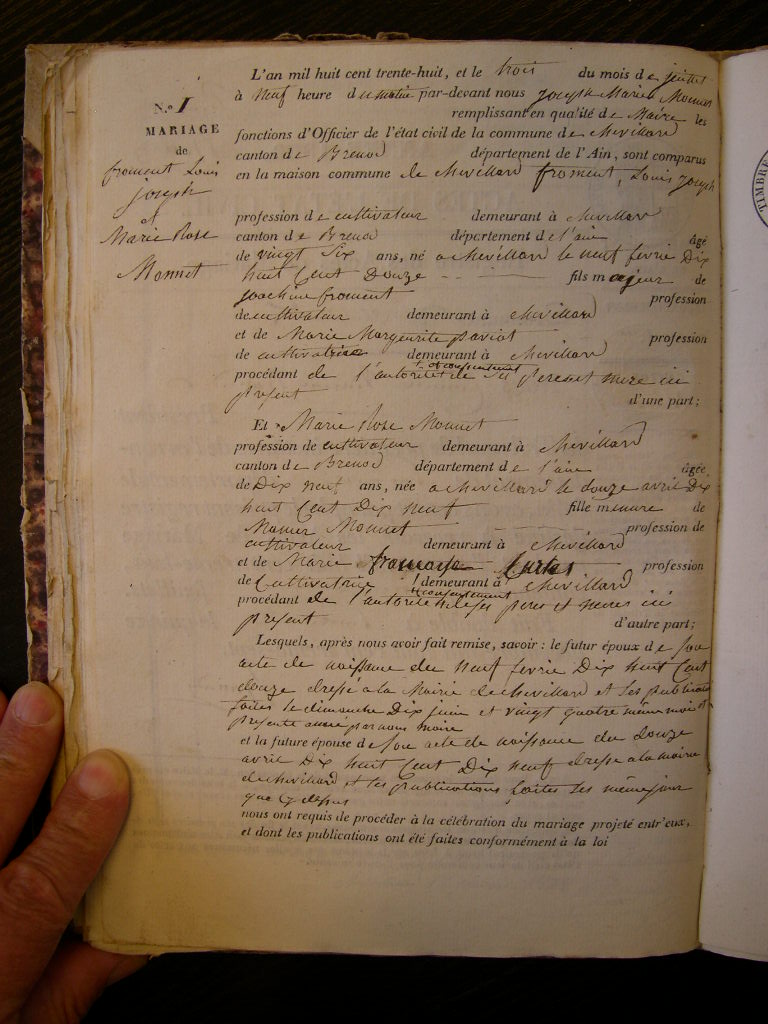 N.o 1
MARIAGE
de
froment Louis
joseph
et
Marie Rose
Monnet
L'an mil huit cent trente-huit, et le trois du mois de juillet
à Neuf heure du matin par-devant nous joseph Marie Monnet
remplissant en qualité de Maire les
fonctions d'Officier de l'état civil de la commune de chevillard
canton de Brenod département de l'Ain, sont comparus
en la maison commune de chevillard froment, Louis joseph
profession de cultivateur demeurant à chevillard
canton de Brenod département de l'ain âgé
de vingt Six ans, né a chevillard le neuf fevrie Dix
huit Cent Douze fils majeur de
joachim froment profession
de cultivateur demeurant à chevillard
et de Marie Marguerite paviot profession
de cultivatrice demeurant à chevillard
procédant de l'autorité et consentement de ses pere et mere ici
present d'une part;
Et Marie Rose Monnet
profession de cultivateur demeurant à chevillard
canton de Brenod département de l'ain âgée
de Dix neuf ans, née a chevillard le douze avril Dix
huit Cent Dix neuf fille mineure de
Monnet profession de
cultivateur demeurant à chevillard
et de Marie francoise profession
de Cultivatrice demeurant à chevillard
procédant de l'autorité et consentement de ses peres et meres ici
present d'autre part;
Lesquels, après nous avoir fait remise, savoir: le futur époux de Son
acte de naissance du neuf fevrie Dix huit Cent
douze dressé a la Mairie de chevillard et les publications
faites le dimanche Dix juin et vingt quatre même mois et
presente année par nous maire
et la future épouse de Son acte de naissance du douze
avril Dix huit Cent Dix neuf dresse a la mairie
de chevillard et les publications faites les même jour
que cy dessus
nous ont requis de procéder à la célébration du mariage projeté entr'eux,
et dont les publications ont été faites conformément à la loi
TIMBRE